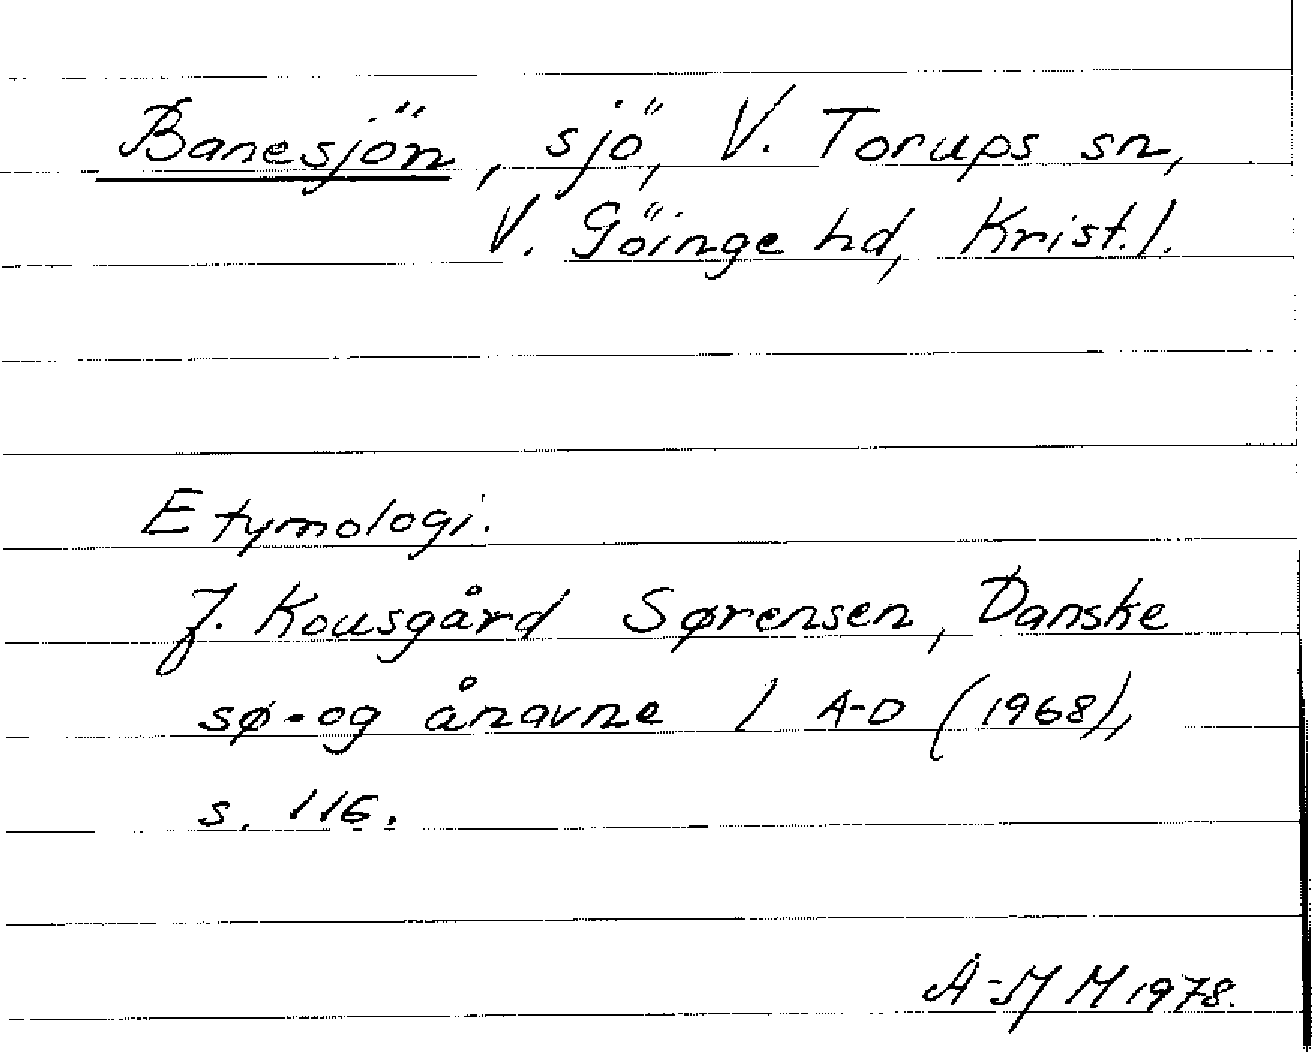 Banesjön, sjö, V. Torups sn,
V. Göinge hd, Krist. l.
Etymologi.
J. Kousgård Sørensen, Danske
sø- og ånavne 1 A-D (1968),
s. 116.
A-M M 1978.